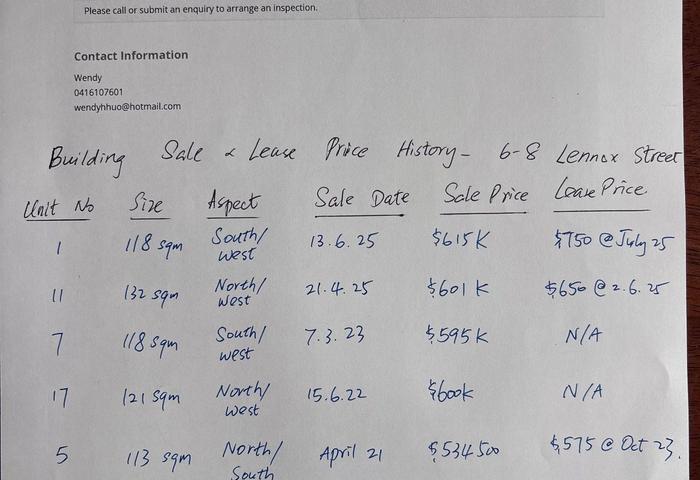 Please call or submit an enquiry to arrange an inspection.
Contact Information
Wendy
0416107601
wendyhhuo@hotmail.com
Building Sale & Lease Price History - 6-8 Lennox Street
Unit No Size Aspect Sale Date Sale Price Lease Price
1 118 sqm South/West 13.6.25 $615K $750 @ July 25
11 132 sqm North/West 21.4.25 $601K $650 @ 2.6.25
7 118 sqm South/West 7.3.23 $595K N/A
17 121 sqm North/West 15.6.22 $600K N/A
5 113 sqm North/South April 21 $534500 $575 @ Oct 23.